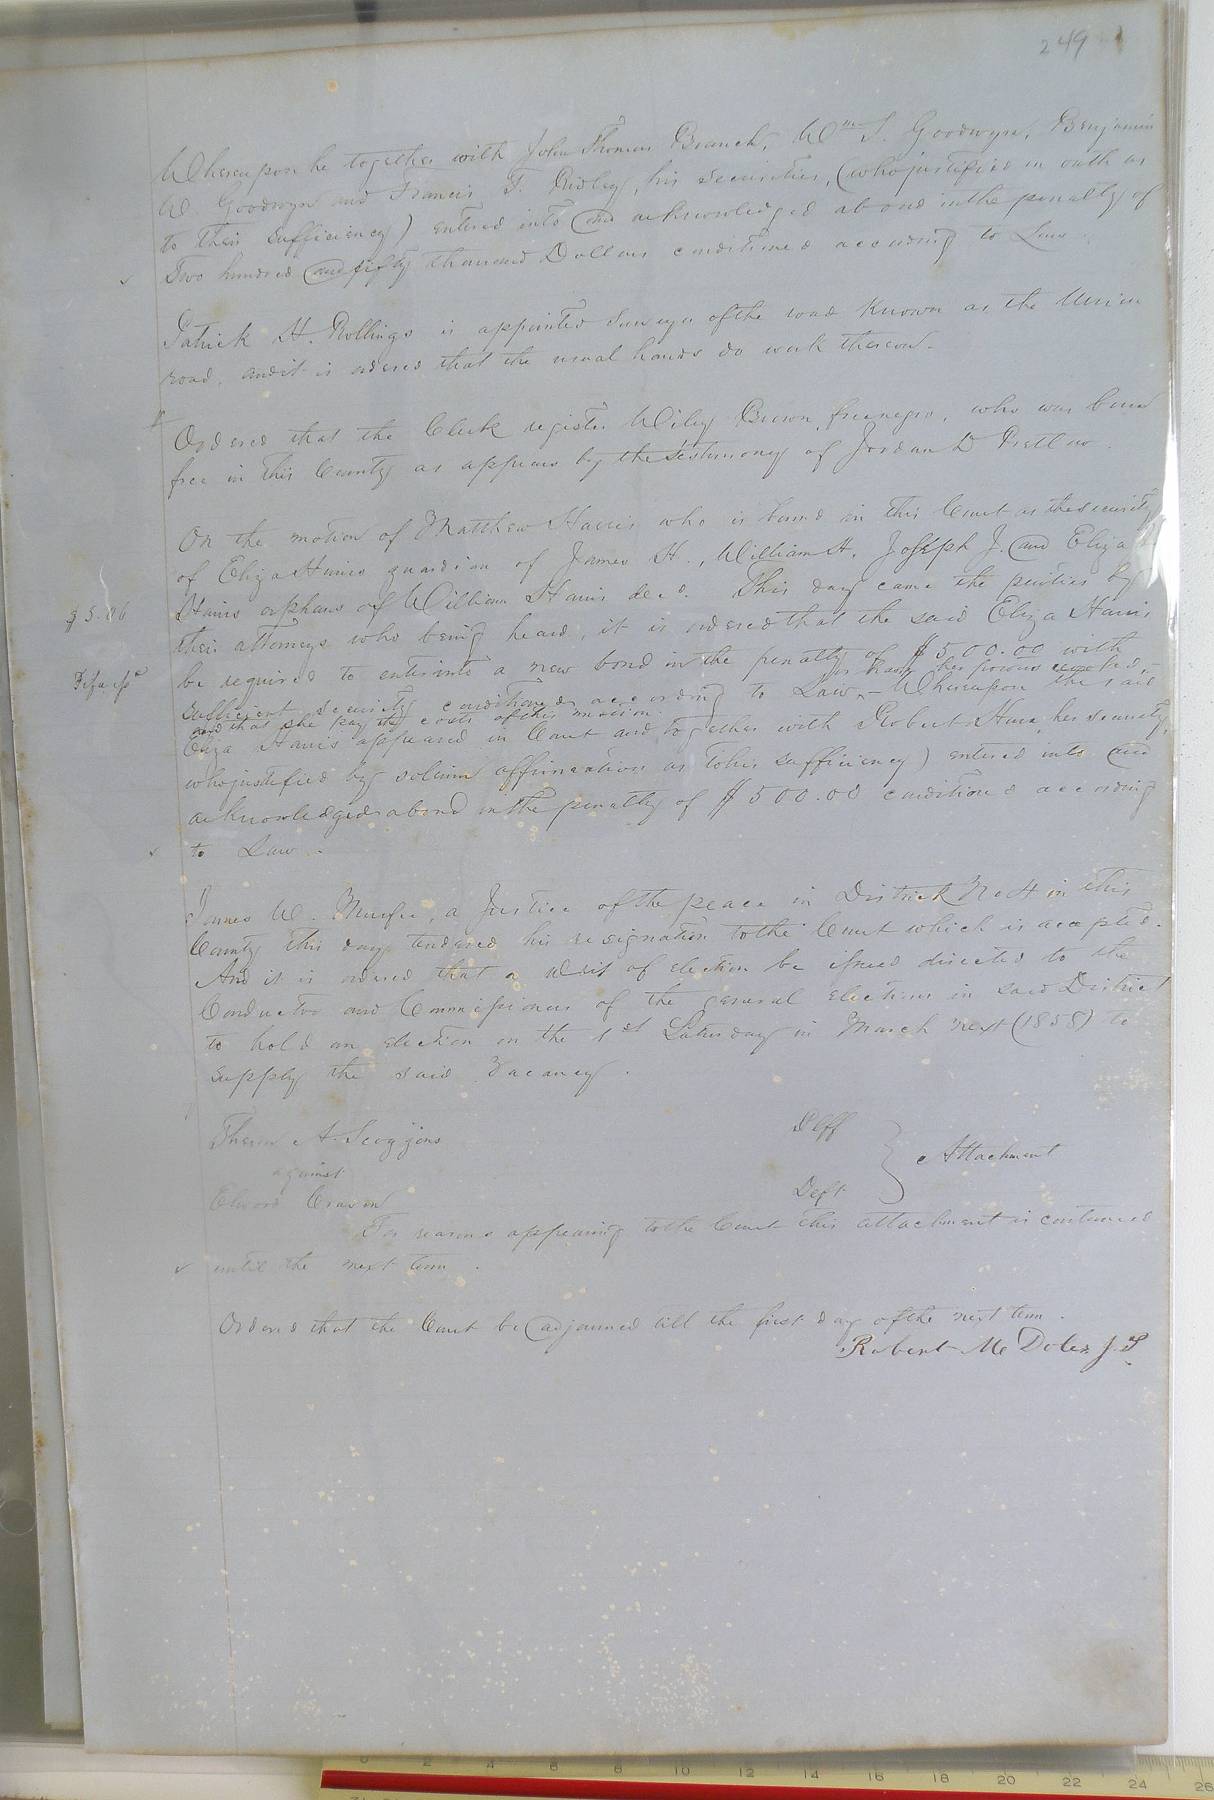 249
Whereupon he together with John Thomas Branch, Wm S. Goodwyn, Benjamin
W. Goodwyn and Francis T. Ridley, his securities, (who justified on oath as
to their sufficiency) entered into and acknowledged a bond in the penalty of
Two hundred and fifty thousand Dollars conditioned according to Law
Patrick H. Rollings is appointed Surveyor of the road known as the Union
road, and it is ordered that the usual hands do work thereon.
Ordered that the Clerk register Wiley Brown, free negro, who was born
free in this County as appears by the testimony of Jordan D Pretlow
On the motion of Matthew Harris who is bound in this Court as the security
of Eliza Harris guardian of James H., William H. Joseph J. and Eliza
Harris orphans of William Harris decd. This day came the parties by
$5.06
their attorneys who being heard, it is ordered that the said Eliza Harris
be required to enter into a new bond in the penalty of $500.00 with
or have her powers revoked
sufficient security conditioned according to Law, - Whereupon the said
and that she pay the costs of this motion
Eliza Harris appeared in Court and together with Robert Hare, her security,
who justified by solemn affirmation as to his sufficiency) entered into and
acknowledged a bond in the penalty of $500.00 conditioned according
to Law -
James W. Murfee, a Justice of the peace in District No 4 in this
County this day tendered his resignation to the Court which is accepted.
And it is ordered that a writ of election be issued directed to the
Conductor and Commissioners of the general elections in said District
to hold an election on the 1st Saturday in March next (1858) to
supply the said vacancy.
A. Scoggins Plff
against Attachment
Elwood Craven Deft
For reasons appearing to the Court this attachment is continued
until the next term.
Ordered that the Court be adjourned till the first day of the next term.
Robert M. Doles J.P.